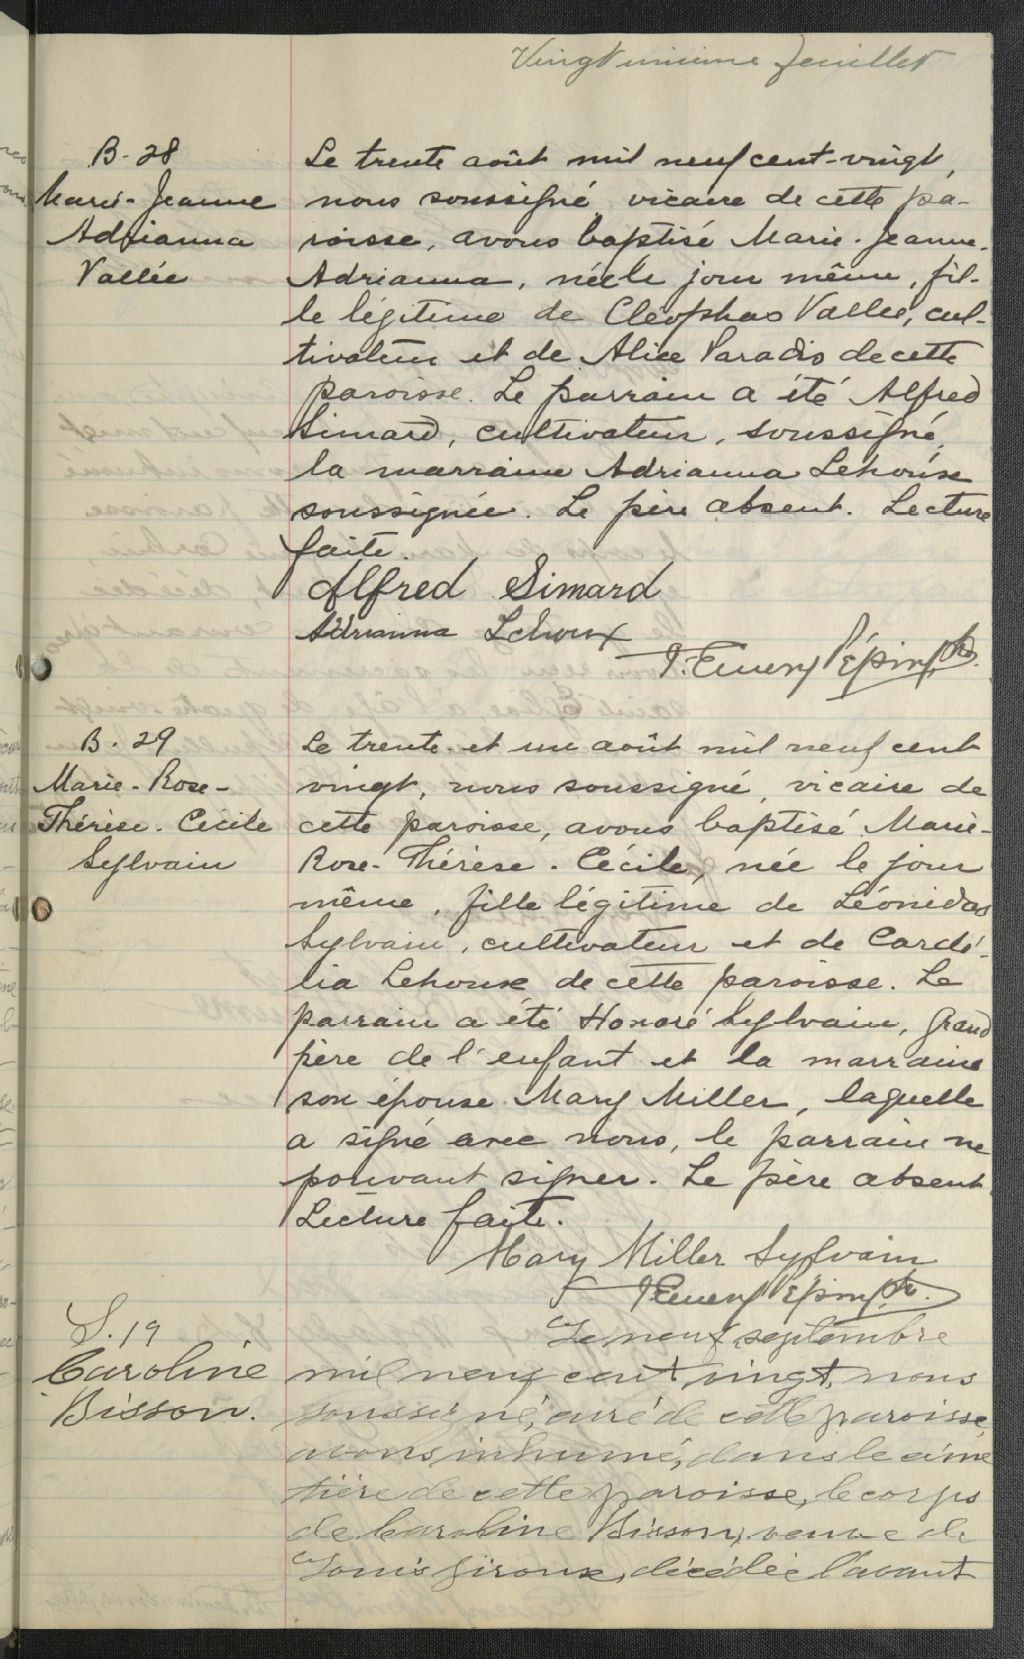 Vingt unieme feuillet
B. 28
Marie-Jeanne
Adrianna
Vallée
Le trente août mil neuf cent-vingt,
nous soussigné vicaire de cette pa-
roisse, avons baptisé Marie-Jeanne-
Adrianna, née le jour même, fil-
le légitime de Cléophas Vallée, cul-
tivateur et de Alice Paradis de cette
paroisse. Le parrain a été Alfred
Simard, cultivateur, soussigné,
la marraine Adrianna Lehoux
soussignée. Le père absent. Lecture
faite.
Alfred Simard
Adrianna Lehoux
J. Emery Pépin, ptre.
B. 29
Marie-Rose-
Thérèse-Cécile
Sylvain
Le trente-et un août mil neuf cent
vingt, nous soussigné, vicaire de
cette paroisse, avons baptisé Marie-
Rose-Thérèse-Cécile, née le jour
même, fille légitime de Léonidas
Sylvain, cultivateur et de Cardé-
lia Lehoux de cette paroisse. Le
parrain a été Honoré Sylvain, grand
père de l'enfant et la marraine
son épouse Mary Miller, laquelle
a signé avec nous, le parrain ne
pouvant signer. Le père absent.
Lecture faite.
Mary Miller Sylvain
J Emery Pépin, ptre.
S. 19
Caroline
Bisson.
Le neuf septembre
mil neuf cent vingt, nous
soussigné, curé de cette paroisse,
avons inhumé, dans le cime
tière de cette paroisse, le corps
de Caroline Bisson, veuve de
Louis Giroux, décédée l'avant